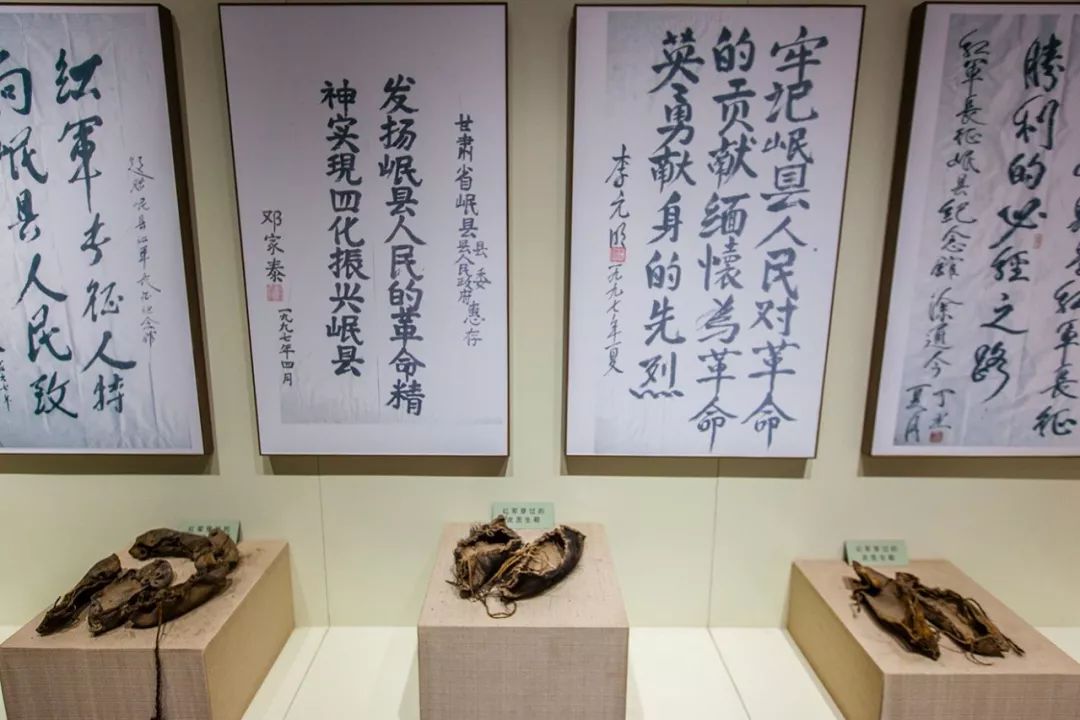 红軍长征人特
向岷县人民致
甘肃省岷县县委
县人民政府
惠存
发扬岷县人民的革命精
神实現四化振兴岷县
邓家泰
一九九七年四月
牢记岷县人民对革命
的贡献缅懷为革命
英勇献身的先烈
李元明
一九九七年夏
县是红軍長征
勝利的必经之路
红軍長征岷县纪念館 涂通今
丁丑
夏月
红军穿过的
红军穿过的
红军穿过的